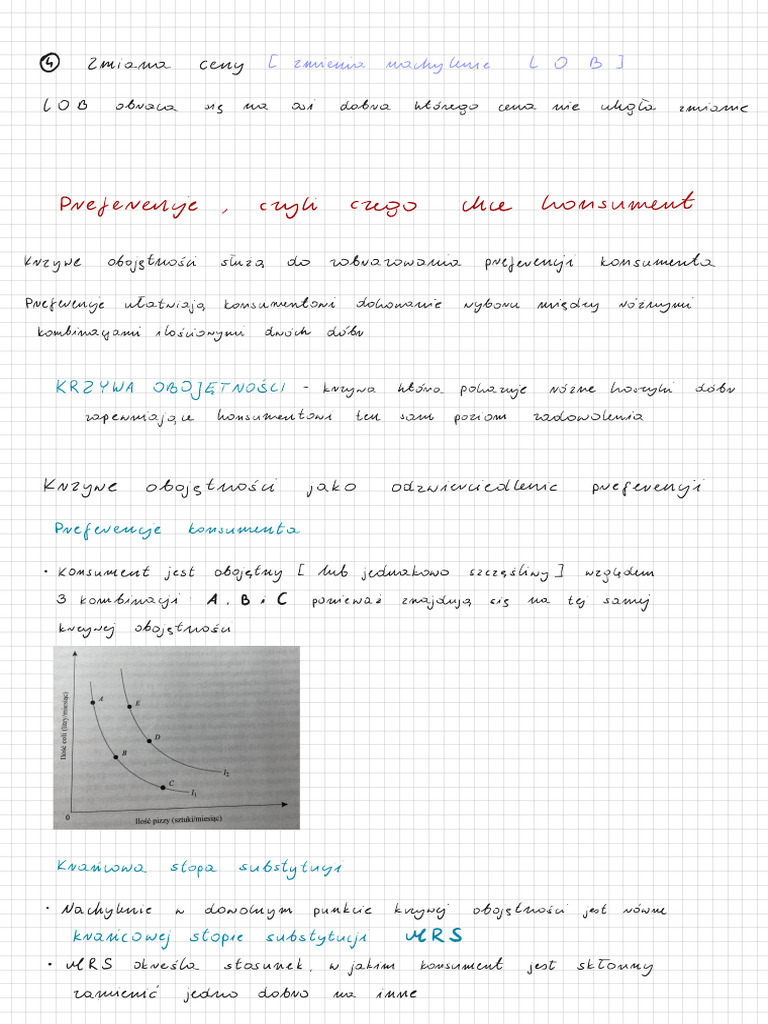 ④ Zmiana ceny [ zmienia nachylenie LOB ]
LOB obraca się na osi dobra którego cena nie uległa zmianie
Preferencje, czyli czego chce konsument
Krzywe obojętności służą do zobrazowania preferencji konsumenta
Preferencje ułatwiają konsumentowi dokonanie wyboru między różnymi
kombinacjami ilościowymi dwóch dóbr
KRZYWA OBOJĘTNOŚCI - krzywa która pokazuje różne koszyki dóbr
zapewniające konsumentowi ten sam poziom zadowolenia
Krzywe obojętności jako odzwierciedlenie preferencji
Preferencje konsumenta
• Konsument jest obojętny [ lub jednakowo szczęśliwy ] względem
3 kombinacji: A, B i C ponieważ znajdują się na tej samej
krzywej obojętności
Ilość coli (litry/miesiąc)
A
E
B
D
C
I₂
I₁
0
Ilość pizzy (sztuki/miesiąc)
Krańcowa stopa substytucji
• Nachylenie w dowolnym punkcie krzywej obojętności jest równe
krańcowej stopie substytucji MRS
• MRS określa stosunek, w jakim konsument jest skłonny
zamienić jedno dobro na inne